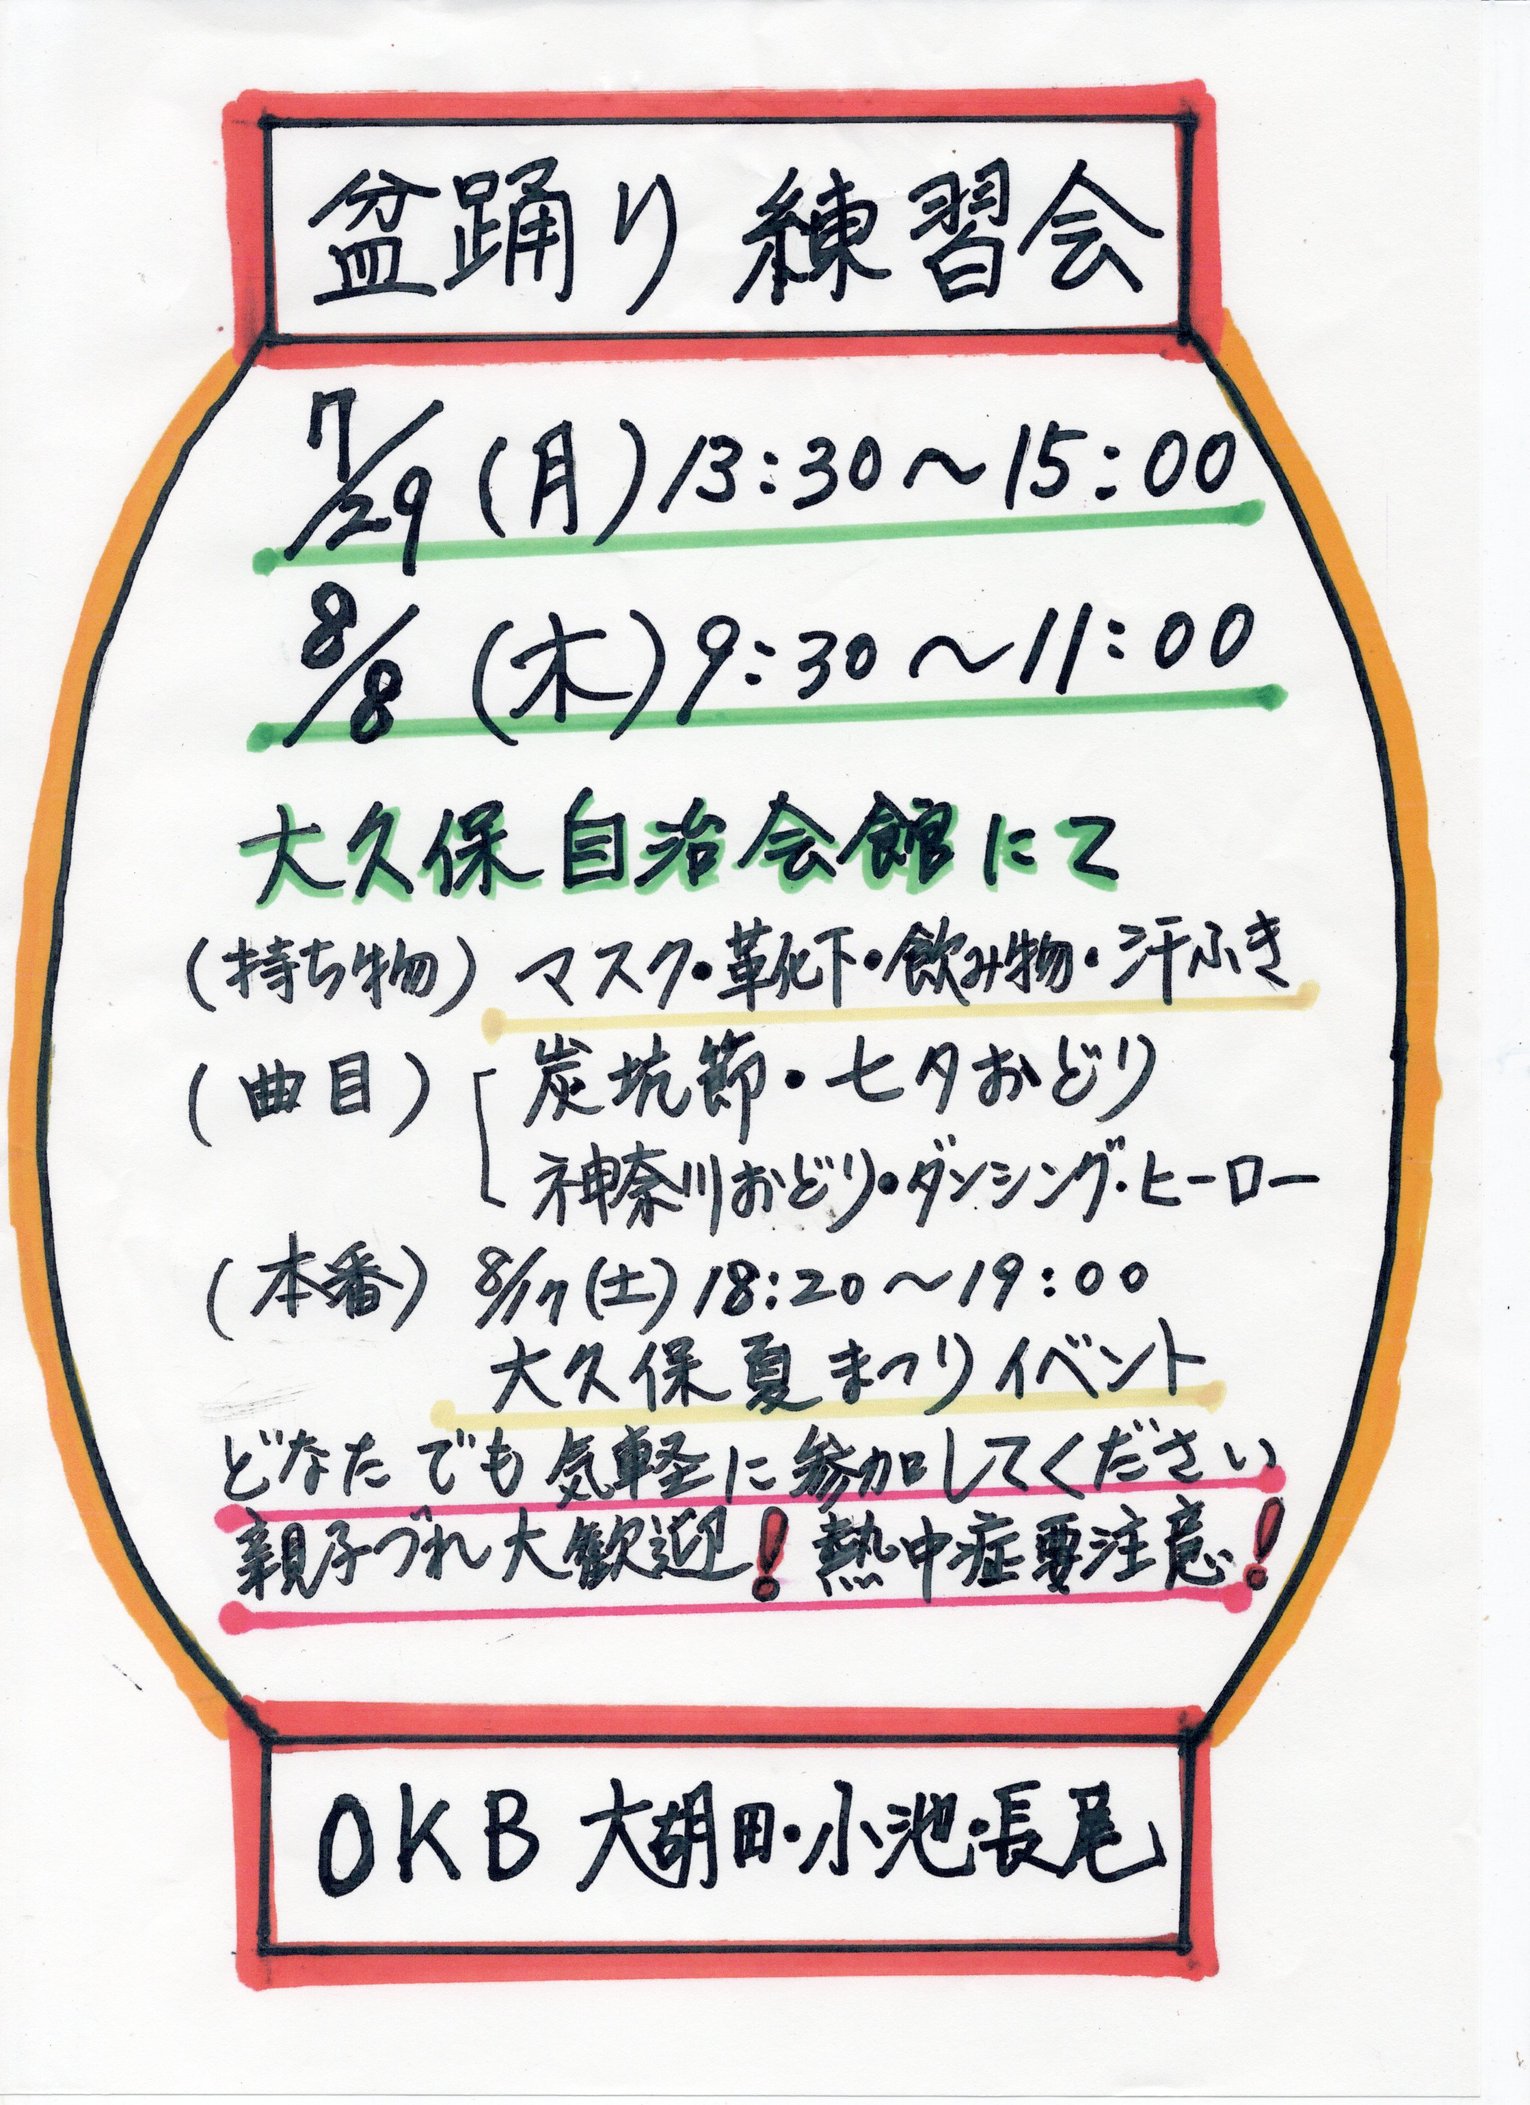 盆踊り 練習会
7/29 (月) 13:30〜15:00
8/8 (木) 9:30〜11:00
大久保自治会館にて
(持ち物) マスク・靴下・飲み物・汗ふき
(曲目) 炭坑節・七夕おどり
神奈川おどり・ダンシング・ヒーロー
(本番) 8/17(土) 18:20〜19:00
大久保夏まつりイベント
どなたでも気軽に参加してください
親子づれ大歓迎! 熱中症要注意!
OKB 大胡田・小池・長尾